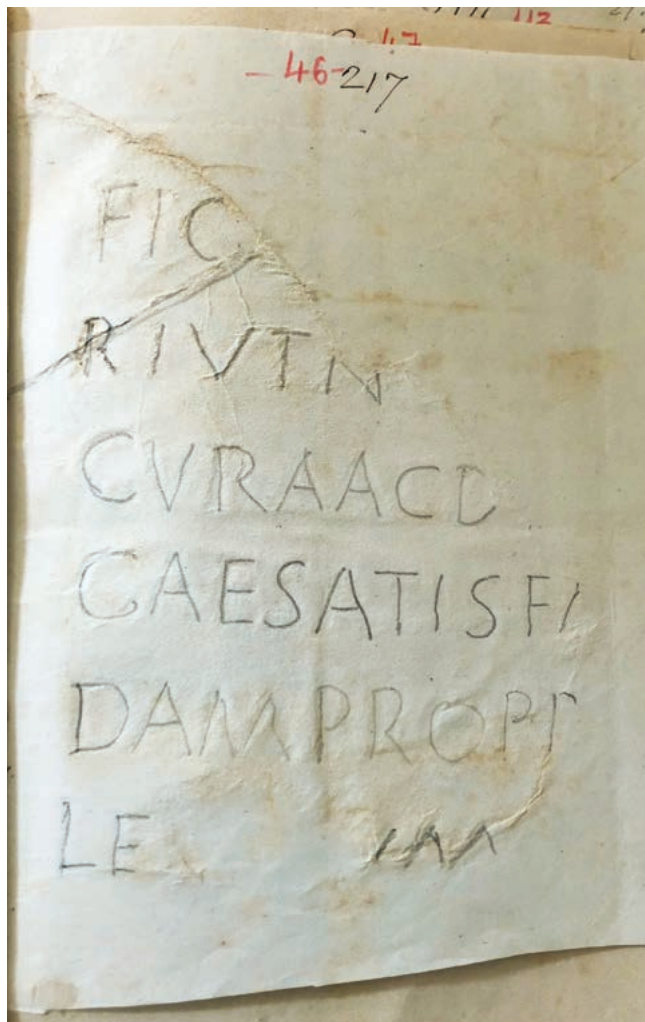 112
47
- 46-217
FIC
RIVTN
CVRAACD
CAESATISFI
DAMPROPP
LE